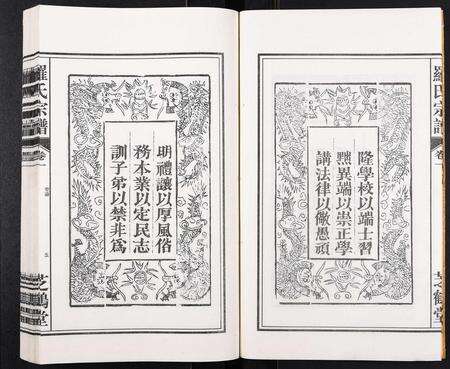 隆學校以端士習
黜異端以崇正學
講法律以儆愚頑
羅氏宗譜
卷一
芝鶴堂
明禮讓以厚風俗
務本業以定民志
訓子弟以禁非為
羅氏宗譜
卷一
芝鶴堂